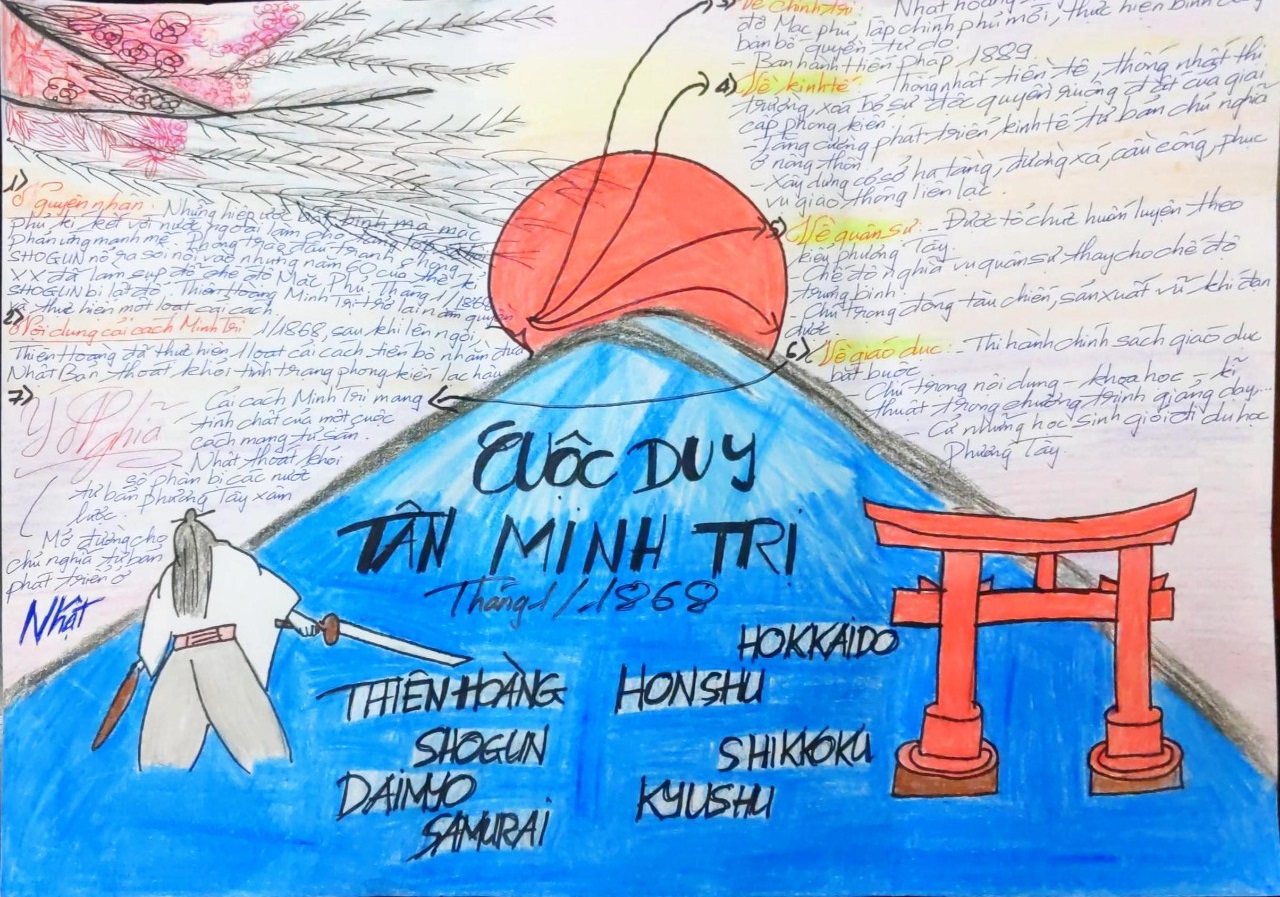 1)
Nguyên nhân: - Những hiệp ước bất bình mà mạc
phủ kí kết với nước ngoài làm cho
phản ứng mạnh mẽ. Phong trào đấu tranh chống
SHOGUN nổ ra sôi nổi vào những năm 60 của thế kỉ
XX đã làm sụp đổ chế độ Mạc Phủ. Tháng 1/1868
SHOGUN bị lật đổ. Thiên Hoàng Minh Trị trở lại nắm quyền
và thực hiện một loạt cải cách.
2)
Nội dung cải cách Minh Trị 1/1868, sau khi lên ngôi,
Thiên Hoàng đã thực hiện 1 loạt cải cách tiến bộ nhằm đưa
Nhật Bản thoát khỏi tình trạng phong kiến lạc hậu
3) Về chính trị: Nhật hoàng
đỡ Mạc phủ, lập chính phủ mới, thực hiện bình
ban bố quyền tự do.
- Ban hành Hiến Pháp 1889
4) Về kinh tế: - Thống nhất tiền tệ, thống nhất thị
trường, xóa bỏ sự độc quyền ruộng đất của giai
cấp phong kiến.
- Tăng cường phát triển kinh tế tư bản chủ nghĩa
ở nông thôn
- Xây dựng cơ sở hạ tầng, đường xá, cầu cống, phục
vụ giao thông liên lạc.
5) Về quân sự: - Được tổ chức huấn luyện theo
kiểu phương Tây.
- Chế độ nghĩa vụ quân sự thay cho chế độ
trưng binh.
- Chú trọng đóng tàu chiến, sản xuất vũ khí đạn
dược.
6) Về giáo dục: - Thi hành chính sách giáo dục
bắt buộc.
- Chú trọng nội dung - khoa học - kĩ
thuật trong chương trình giảng dạy...
- Cử những học sinh giỏi đi du học
Phương Tây.
7)
Ý Nghĩa
Cải cách Minh Trị mang
tính chất của một cuộc
cách mạng tư sản.
Nhật thoát khỏi
số phận bị các nước
tư bản phương Tây xâm
lược.
Mở đường cho
chủ nghĩa tư bản
phát triển ở
Nhật
CUỘC DUY
TÂN MINH TRỊ
Tháng 1/1868
THIÊN HOÀNG
SHOGUN
DAIMYO
SAMURAI
HOKKAIDO
HONSHU
SHIKKOKU
KYUSHU